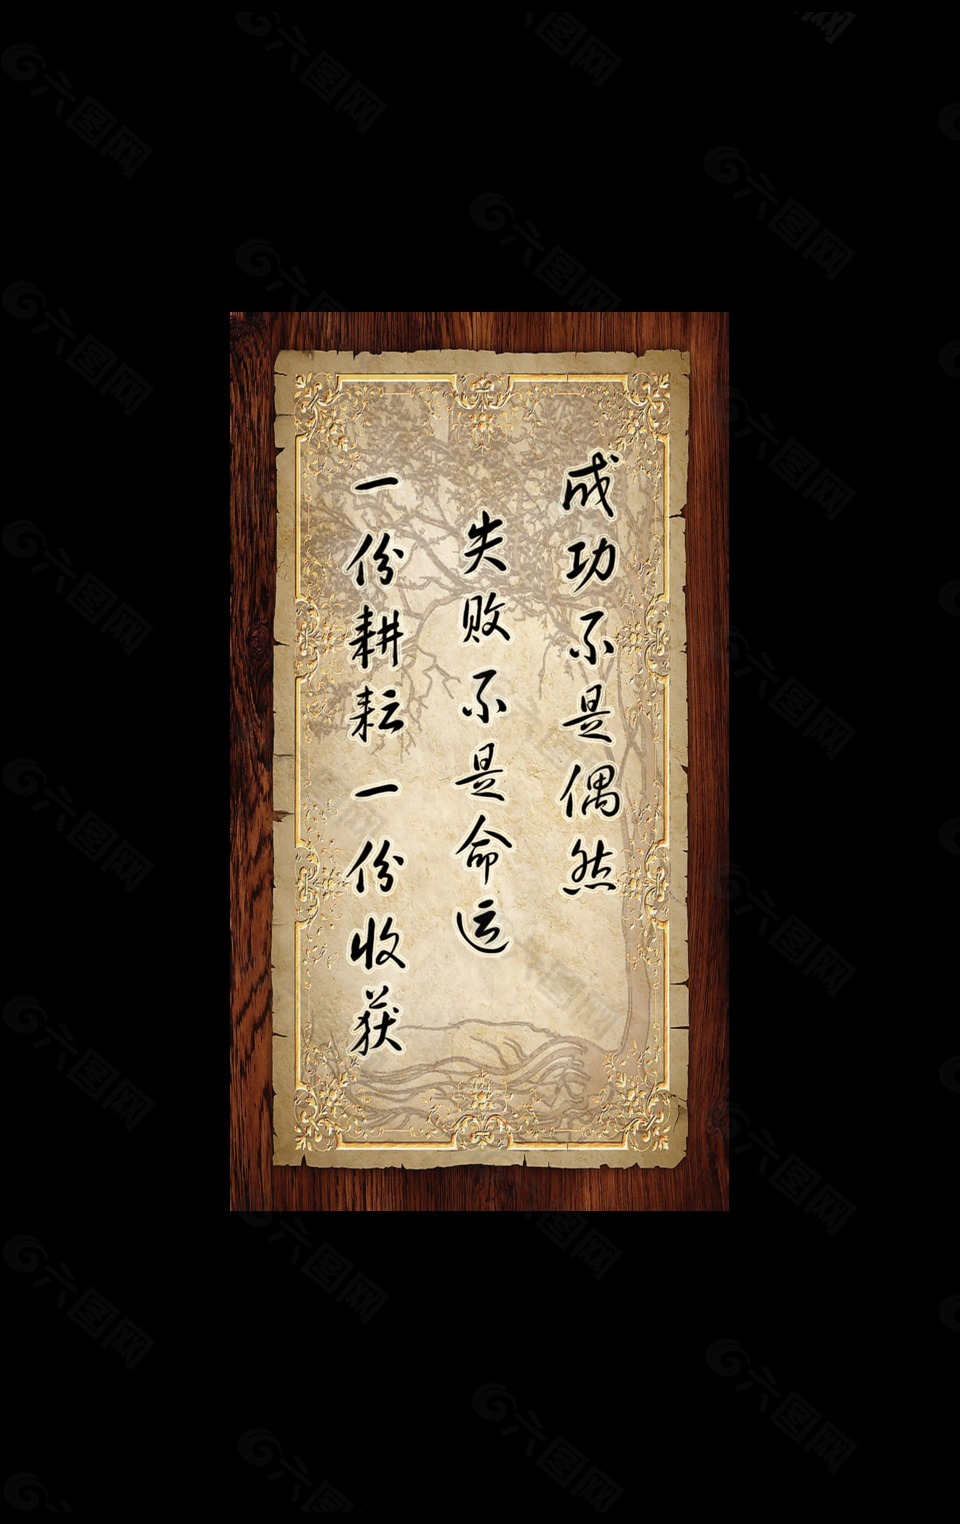 成功不是偶然
失败不是命运
一份耕耘一份收获
六图网